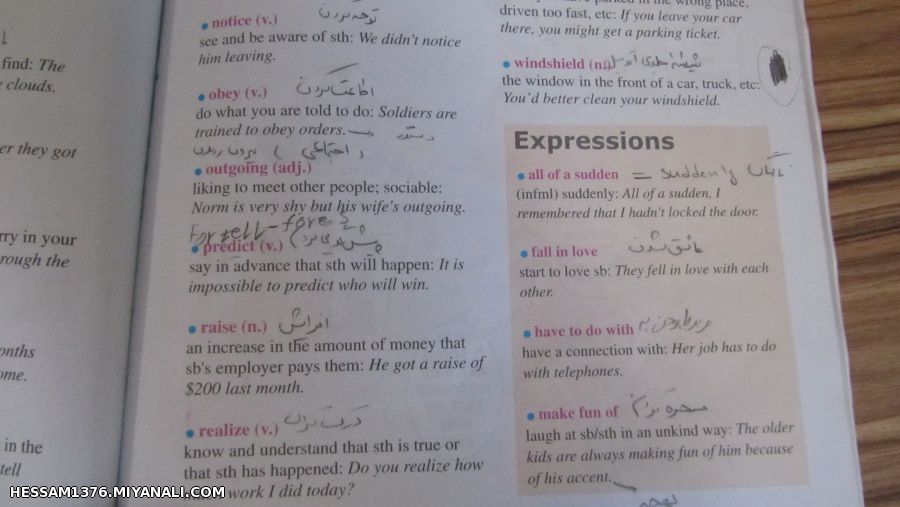 find: The
clouds.
er they got
rry in your
rough the
onths
ome.
in the
tell
notice (v.) توجه کردن
see and be aware of sth: We didn't notice
him leaving.
obey (v.) اطاعت کردن
do what you are told to do: Soldiers are
trained to obey orders.
outgoing (adj.)
liking to meet other people; sociable:
Norm is very shy but his wife's outgoing.
predict (v.)
say in advance that sth will happen: It is
impossible to predict who will win.
raise (n.) افزایش
an increase in the amount of money that
sb's employer pays them: He got a raise of
$200 last month.
realize (v.) درک کردن
know and understand that sth is true or
that sth has happened: Do you realize how
work I did today?
driven too fast, etc: If you leave your car
there, you might get a parking ticket.
windshield (n.)
the window in the front of a car, truck, etc:
You'd better clean your windshield.
Expressions
all of a sudden = suddenly ناگهان
(infml) suddenly: All of a sudden, I
remembered that I hadn't locked the door.
fall in love عاشق شدن
start to love sb: They fell in love with each
other.
have to do with مربوط بودن به
have a connection with: Her job has to do
with telephones.
make fun of مسخره کردن
laugh at sb/sth in an unkind way: The older
kids are always making fun of him because
of his accent.
لهجه
HESSAM1376.MIYANALI.COM